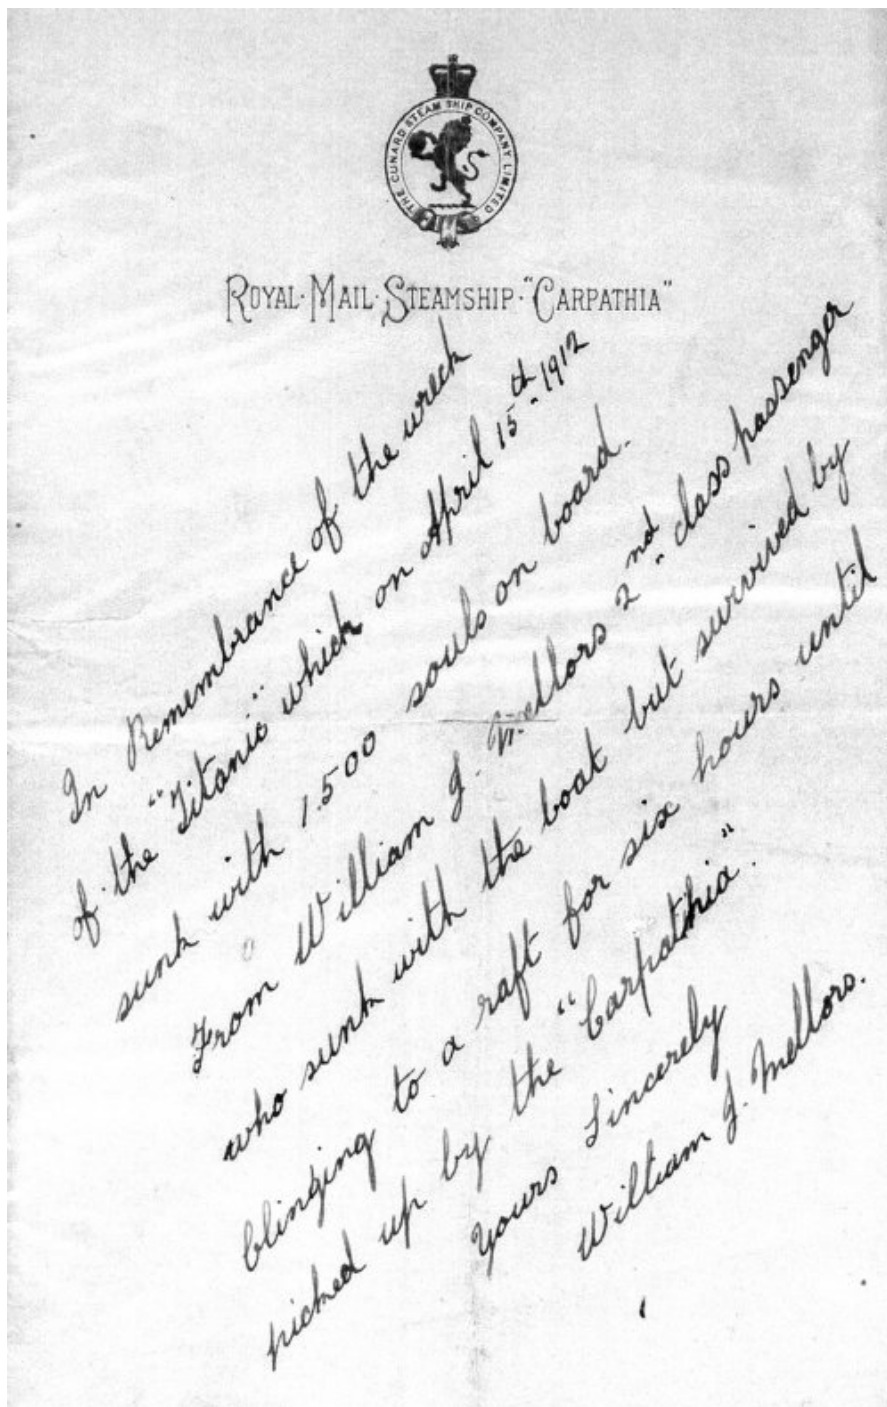 THE CUNARD STEAM SHIP COMPANY LIMITED
ROYAL·MAIL·STEAMSHIP·"CARPATHIA"
In Remembrance of the wreck
of the "Titanic" which on April 15th 1912
sunk with 1500 souls on board.
From William J. Mellors 2nd class passenger
who sunk with the boat but survived by
Clinging to a raft for six hours until
picked up by the "Carpathia".
Yours Sincerely
William J. Mellors.